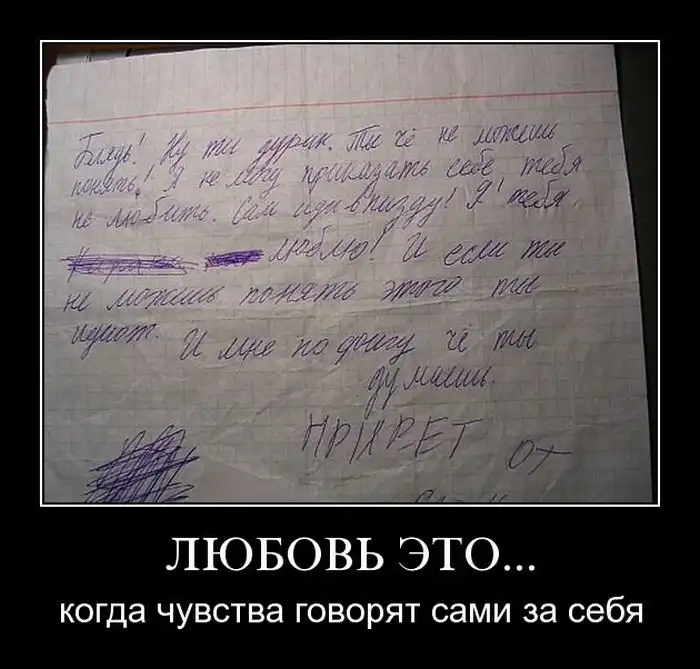 Блядь! Ну ты дурак. Ты чё не можешь
понять! Я не могу приказать себе тебя
не любить. Сам иди в пизду! Я тебя
люблю! И если ты
не можешь понять этого ты
идиот.
И мне по фигу чё ты
думаешь.
ПРИВЕТ от
ЛЮБОВЬ ЭТО...
когда чувства говорят сами за себя